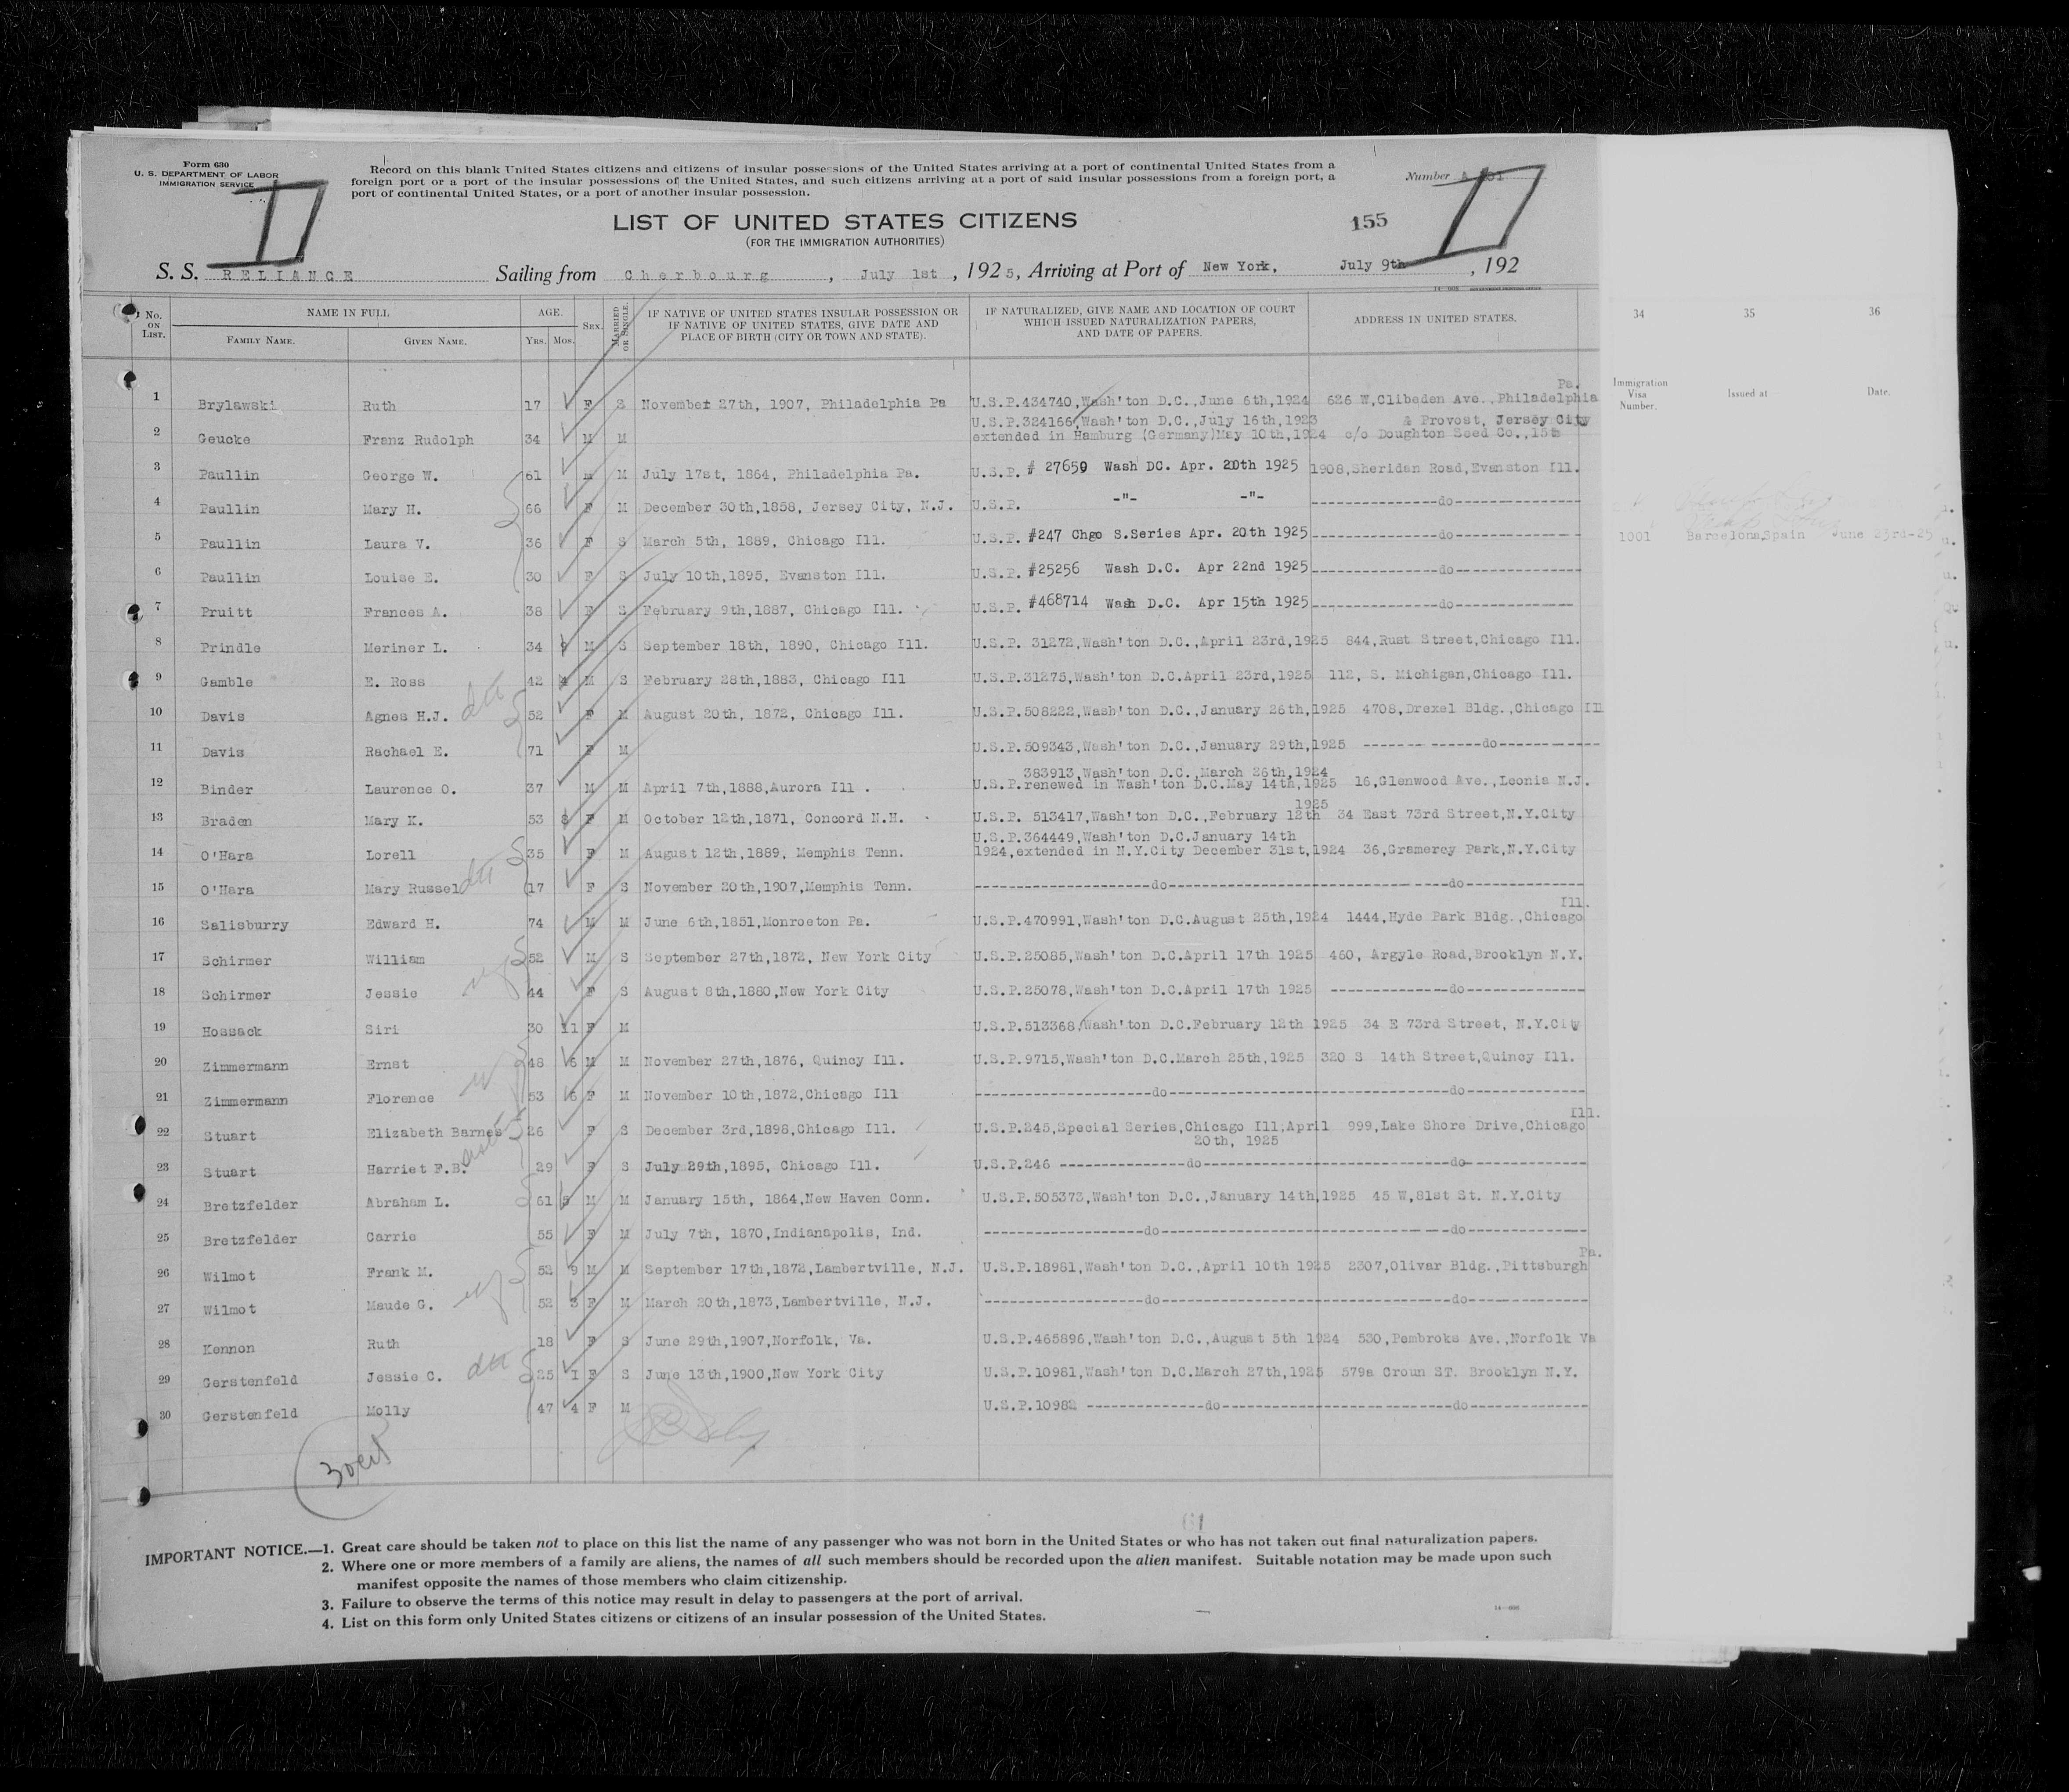 Form 630
U. S. DEPARTMENT OF LABOR
IMMIGRATION SERVICE
Record on this blank United States citizens and citizens of insular possessions of the United States arriving at a port of continental United States from a
foreign port or a port of the insular possessions of the United States, and such citizens arriving at a port of said insular possessions from a foreign port, a
port of continental United States, or a port of another insular possession.
Number
LIST OF UNITED STATES CITIZENS
155
(FOR THE IMMIGRATION AUTHORITIES)
S. S. RELIANCE Sailing from Cherbourg, July 1st, 1925, Arriving at Port of New York, July 9th, 192
No. ON LIST. NAME IN FULL FAMILY NAME. GIVEN NAME. AGE. YRS. MOS. SEX. MARRIED OR SINGLE. IF NATIVE OF UNITED STATES INSULAR POSSESSION OR IF NATIVE OF UNITED STATES, GIVE DATE AND PLACE OF BIRTH (CITY OR TOWN AND STATE). IF NATURALIZED, GIVE NAME AND LOCATION OF COURT WHICH ISSUED NATURALIZATION PAPERS, AND DATE OF PAPERS. ADDRESS IN UNITED STATES.
34 35 36
Immigration Visa Number. Issued at Date.
1 Brylawski Ruth 17 F S November 27th, 1907, Philadelphia Pa U.S.P.434740,Wash'ton D.C.,June 6th,1924 626 W,Clibeden Ave.,Philadelphia Pa.
2 Geucke Franz Rudolph 34 M M U.S.P.324166,Wash'ton D.C.,July 16th,1923 & Provost, Jersey City
extended in Hamburg (Germany)May 10th,1924 c/o Doughton Seed Co.,15th
3 Paullin George W. 61 M M July 17st, 1864, Philadelphia Pa. U.S.P. # 27659 Wash DC. Apr. 20th 1925 1908,Sheridan Road,Evanston Ill.
4 Paullin Mary H. 66 F M December 30th,1858, Jersey City, N.J. U.S.P. -"- -"- do
5 Paullin Laura V. 36 F S March 5th, 1889, Chicago Ill. U.S.P. #247 Chgo S.Series Apr. 20th 1925 do
1001 Barcelona,Spain June 23rd-25
6 Paullin Louise E. 30 F S July 10th,1895, Evanston Ill. U.S.P. #25256 Wash D.C. Apr 22nd 1925 do
7 Pruitt Frances A. 38 F S February 9th,1887, Chicago Ill. U.S.P. #468714 Wash D.C. Apr 15th 1925 do
8 Prindle Meriner L. 34 9 M S September 18th, 1890, Chicago Ill. U.S.P. 31272,Wash'ton D.C.,April 23rd,1925 844,Rust Street,Chicago Ill.
9 Gamble E. Ross 42 4 M S February 28th,1883, Chicago Ill U.S.P.31275,Wash'ton D.C.April 23rd,1925 112, S. Michigan,Chicago Ill.
10 Davis Agnes H.J. 52 F M August 20th, 1872, Chicago Ill. U.S.P.508222,Wash'ton D.C.,January 26th,1925 4708,Drexel Bldg.,Chicago Ill
11 Davis Rachael E. 71 F M U.S.P.509343,Wash'ton D.C.,January 29th,1925 do
12 Binder Laurence O. 37 M M April 7th,1888,Aurora Ill . 383913,Wash'ton D.C.,March 26th,1924
U.S.P.renewed in Wash'ton D.C.May 14th,1925 16,Glenwood Ave.,Leonia N.J.
13 Braden Mary K. 53 8 F M October 12th,1871, Concord N.H. U.S.P. 513417,Wash'ton D.C.,February 12th 1925 34 East 73rd Street,N.Y.City
14 O'Hara Lorell 35 F M August 12th,1889, Memphis Tenn. U.S.P.364449,Wash'ton D.C.January 14th
1924,extended in N.Y.City December 31st,1924 36,Gramercy Park,N.Y.City
15 O'Hara Mary Russel 17 F S November 20th,1907,Memphis Tenn. do do
16 Salisburry Edward H. 74 M M June 6th,1851,Monroeton Pa. U.S.P.470991,Wash'ton D.C.August 25th,1924 1444,Hyde Park Bldg.,Chicago Ill.
17 Schirmer William 52 M S September 27th,1872, New York City U.S.P.25085,Wash'ton D.C.April 17th 1925 460, Argyle Road,Brooklyn N.Y.
18 Schirmer Jessie 44 F S August 8th,1880,New York City U.S.P.25078,Wash'ton D.C.April 17th 1925 do
19 Hossack Siri 30 11 F M U.S.P.513368,Wash'ton D.C.February 12th 1925 34 E 73rd Street, N.Y.City
20 Zimmermann Ernst 48 6 M M November 27th,1876, Quincy Ill. U.S.P.9715,Wash'ton D.C.March 25th,1925 320 S 14th Street,Quincy Ill.
21 Zimmermann Florence 53 6 F M November 10th,1872,Chicago Ill do do
22 Stuart Elizabeth Barnes 26 F S December 3rd,1898,Chicago Ill. U.S.P.245,Special Series,Chicago Ill;April 20th, 1925 999,Lake Shore Drive,Chicago Ill.
23 Stuart Harriet F.B. 29 F S July 29th,1895, Chicago Ill. U.S.P.246 do do
24 Bretzfelder Abraham L. 61 5 M M January 15th, 1864,New Haven Conn. U.S.P.505373,Wash'ton D.C.,January 14th,1925 45 W,81st St. N.Y.City
25 Bretzfelder Carrie 55 F M July 7th, 1870,Indianapolis, Ind. do do
26 Wilmot Frank M. 52 9 M M September 17th,1872,Lambertville, N.J. U.S.P.18981,Wash'ton D.C.,April 10th 1925 2307,Olivar Bldg.,Pittsburgh Pa.
27 Wilmot Maude G. 52 3 F M March 20th,1873,Lambertville, N.J. do do
28 Kennon Ruth 18 F S June 29th,1907,Norfolk, Va. U.S.P.465896,Wash'ton D.C.,August 5th 1924 530,Pembroks Ave.,Norfolk Va
29 Gerstenfeld Jessie C. 25 1 F S June 13th,1900,New York City U.S.P.10981,Wash'ton D.C.March 27th,1925 579a Croun ST. Brooklyn N.Y.
30 Gerstenfeld Molly 47 4 F M U.S.P.10982 do do
IMPORTANT NOTICE.—1. Great care should be taken not to place on this list the name of any passenger who was not born in the United States or who has not taken out final naturalization papers.
2. Where one or more members of a family are aliens, the names of all such members should be recorded upon the alien manifest. Suitable notation may be made upon such
manifest opposite the names of those members who claim citizenship.
3. Failure to observe the terms of this notice may result in delay to passengers at the port of arrival.
4. List on this form only United States citizens or citizens of an insular possession of the United States.